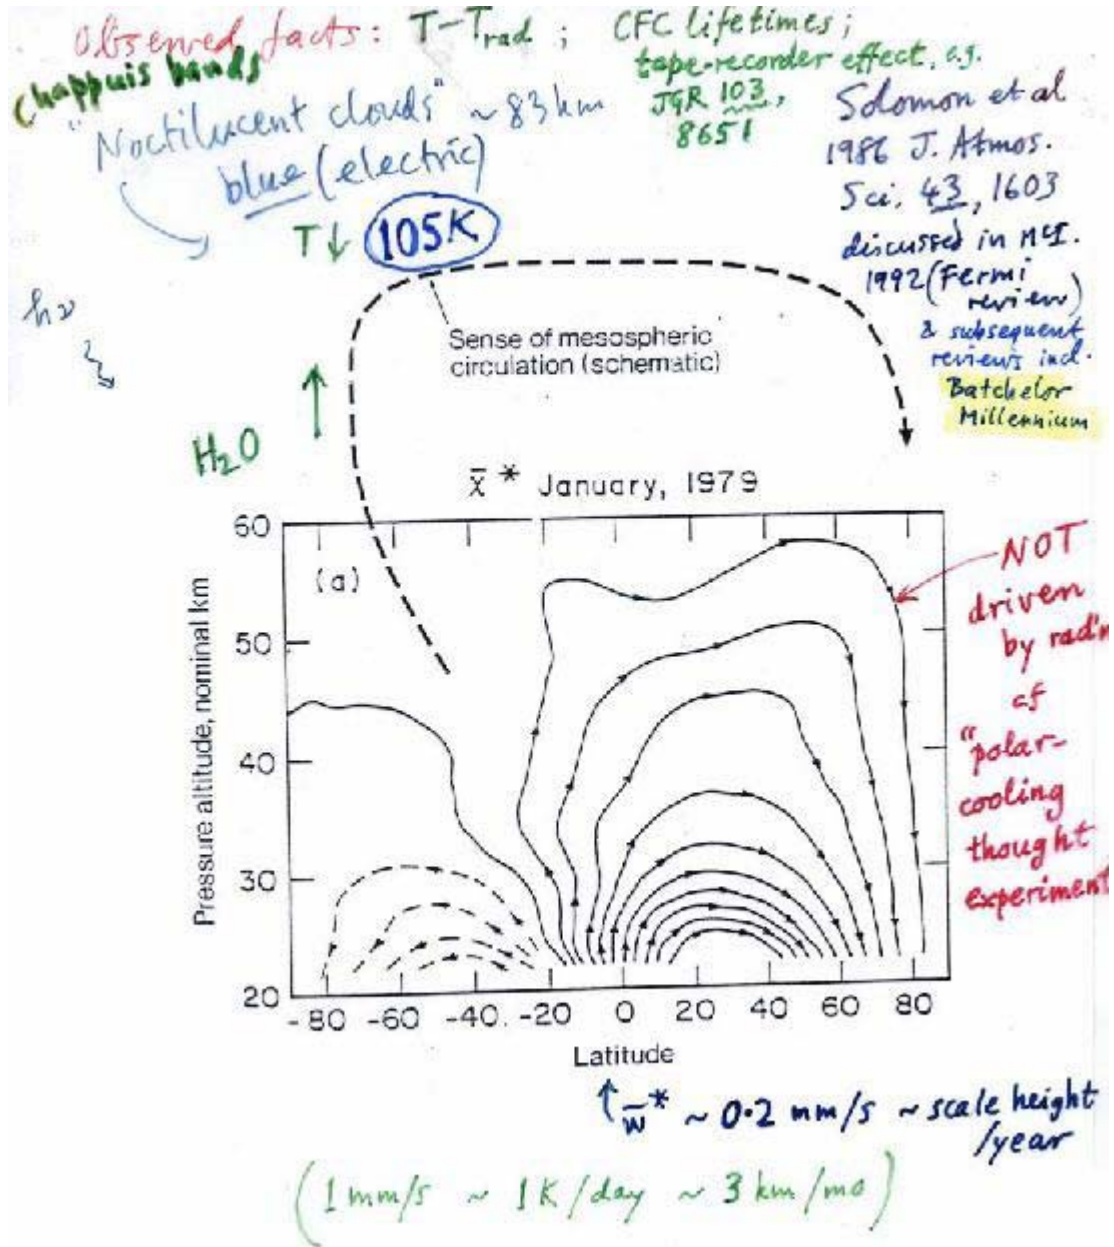 Observed facts: T-Trad ; CFC lifetimes;
tape-recorder effect, e.g.
JGR 103,
8651
Chappuis bands
"Noctilucent clouds" ~83km
blue (electric)
Solomon et al
1986 J. Atmos.
Sci. 43, 1603
discussed in McI.
1992 (Fermi
review)
& subsequent
reviews incl.
Batchelor
Millennium
T↓ 105K
hν
Sense of mesospheric
circulation (schematic)
H₂O ↑
χ̄* January, 1979
(a)
60
50
40
30
20
Pressure altitude, nominal km
-80 -60 -40 -20 0 20 40 60 80
Latitude
NOT
driven
by rad'n
cf
"polar-
cooling
thought
experiment
↑ w̄* ~ 0.2 mm/s ~ scale height
/year
(1mm/s ~ 1K/day ~ 3km/mo)